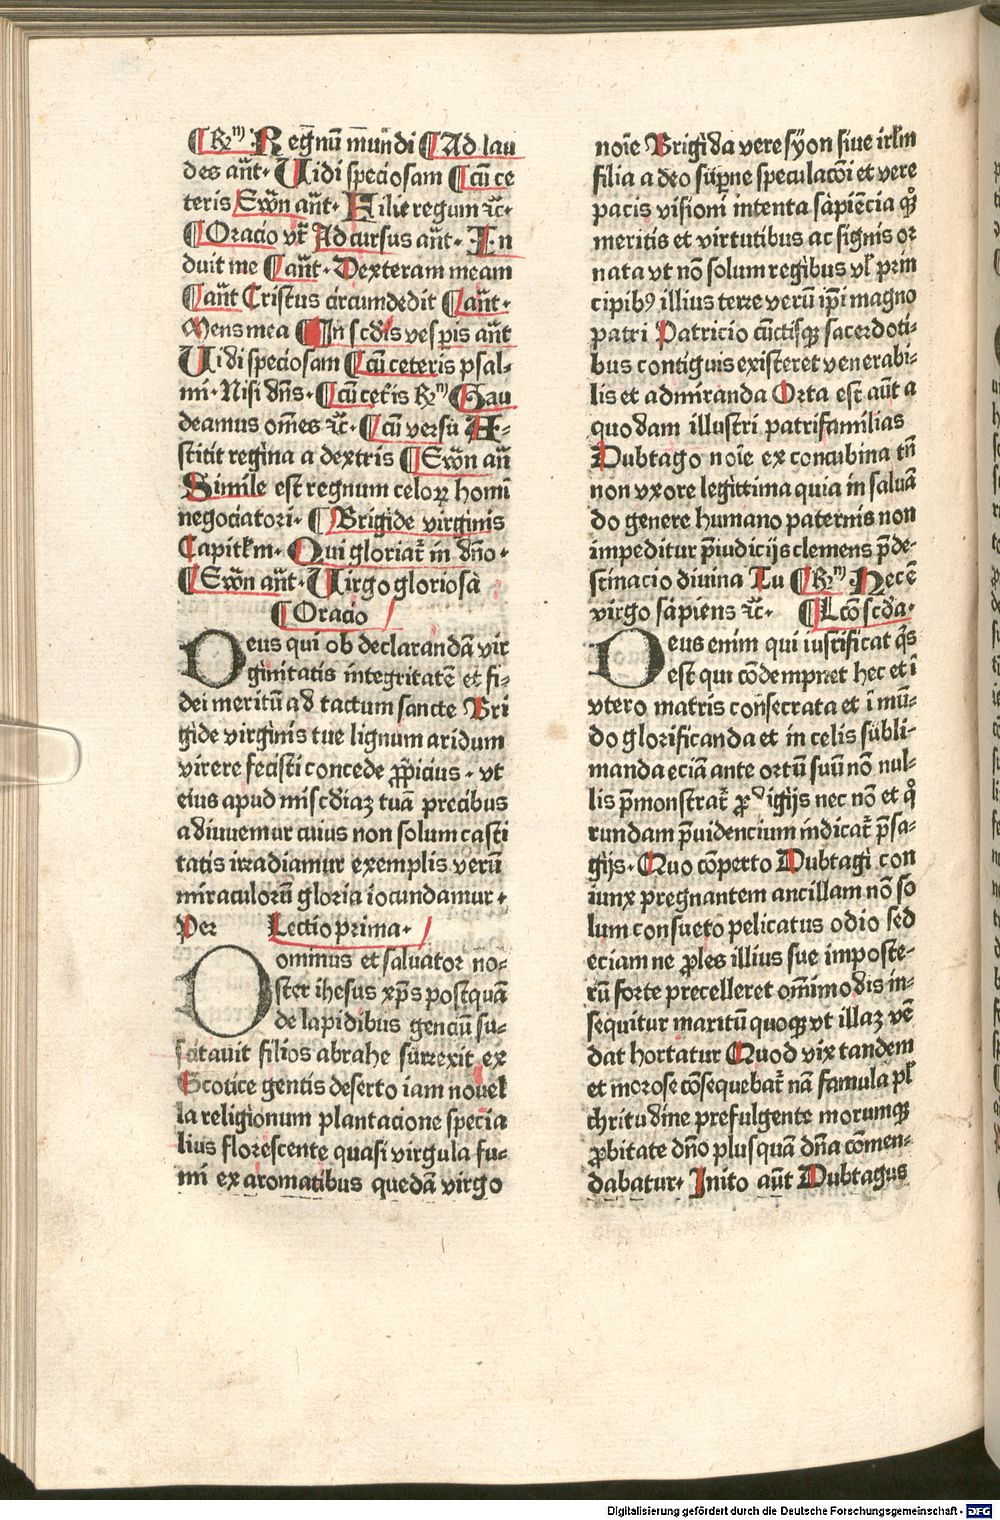 ¶ Rᵐ Regnū mundi ¶ Ad lau
des an̄t· Uidi speciosam ¶ cū ce
teris Ewn̄ an̄t· Filie regum ꝛc·
¶ Oracio vt̄ Ad cursus an̄t· In
duit me ¶ an̄t· Dexteram meam
¶ an̄t Cristus circumdedit ¶ an̄t·
Mens mea ¶ In scd̄is vesꝑis an̄t
Uidi speciosam ¶ cū ceteris psal⸗
mi· Nisi dn̄s· ¶ cū cet̄is Rᵐ ¶ Gau
deamus om̄es ꝛc· ¶ cū versu A⸗
stitit regina a dextris ¶ Ewn̄ an̄
Simile est regnum celoꝝ homī
negociatori· ¶ Brigide virginis
Capitl̄m· Qui gloriat̄ in dn̄o·
¶ Ewn̄ an̄t· Uirgo gloriosa
¶ Oracio
Deus qui ob declarandā vir
ginitatis integritatē et fi⸗
dei meritū ad tactum sancte Bri
gide virginis tue lignum aridum
virere fecisti concede ꝓpicius· vt
eius apud miscd̄iaꝫ tuā precibus
adiuuemur cuius non solum casti
tatis irradiamur exemplis verū
miraculorū gloria iocundamur·
Per Lectio prima·
Dominus et saluator no⸗
ster ihesus xp̄s postquā
de lapidibus genciū su⸗
scitauit filios abrahe surrexit ex
Scotice gentis deserto iam nouel
la religionum plantacione specia
lius florescente quasi virgula fu⸗
mi ex aromatibus quedā virgo
noīe Brigida vere syon siue irl̄m
filia a deo suꝑne speculacōi et vere
pacis visioni intenta sapiēcia qͦꝫ
meritis et virtutibus ac signis or
nata vt nō solum regibus vl̄ prin
cipibꝰ illius terre verū ip̄i magno
patri Patricio cūctisqꝫ sacerdoti⸗
bus contiguis existeret venerabi⸗
lis et admiranda Orta est aūt a
quodam illustri patrifamilias
Dubtago noīe ex concubina tn̄
non vxore legittima quia in saluā
do genere humano paternis non
impeditur p̄iudicijs clemens p̄de⸗
stinacio diuina Tu ¶ Rᵐ Hec ē
virgo sapiens ꝛc· ¶ Lcō scd̄a·
Deus enim qui iustificat q̄s
est qui cōdempnet hec et ī
vtero matris consecrata et ī mū⸗
do glorificanda et in celis subli⸗
manda eciā ante ortū suū nō nul⸗
lis p̄monstrat̄ ꝓdigijs nec nō et qͦ
rundam p̄uidencium indicat̄ p̄sa⸗
gijs· Quo cōperto Dubtagi con
iunx pregnantem ancillam nō so
lum consueto pelicatus odio sed
eciam ne ꝓles illius sue imposte⸗
rū forte precelleret om̄imodis in⸗
sequitur maritū quoqꝫ vt illaꝫ vē
dat hortatur Quod vix tandem
et morose cōsequebat̄ nā famula pl̄
chritudine prefulgente morumqꝫ
ꝓbitate dn̄o plusquā dn̄a cōmen⸗
dabatur· Inito aūt Dubtagus
Digitalisierung gefördert durch die Deutsche Forschungsgemeinschaft - DFG